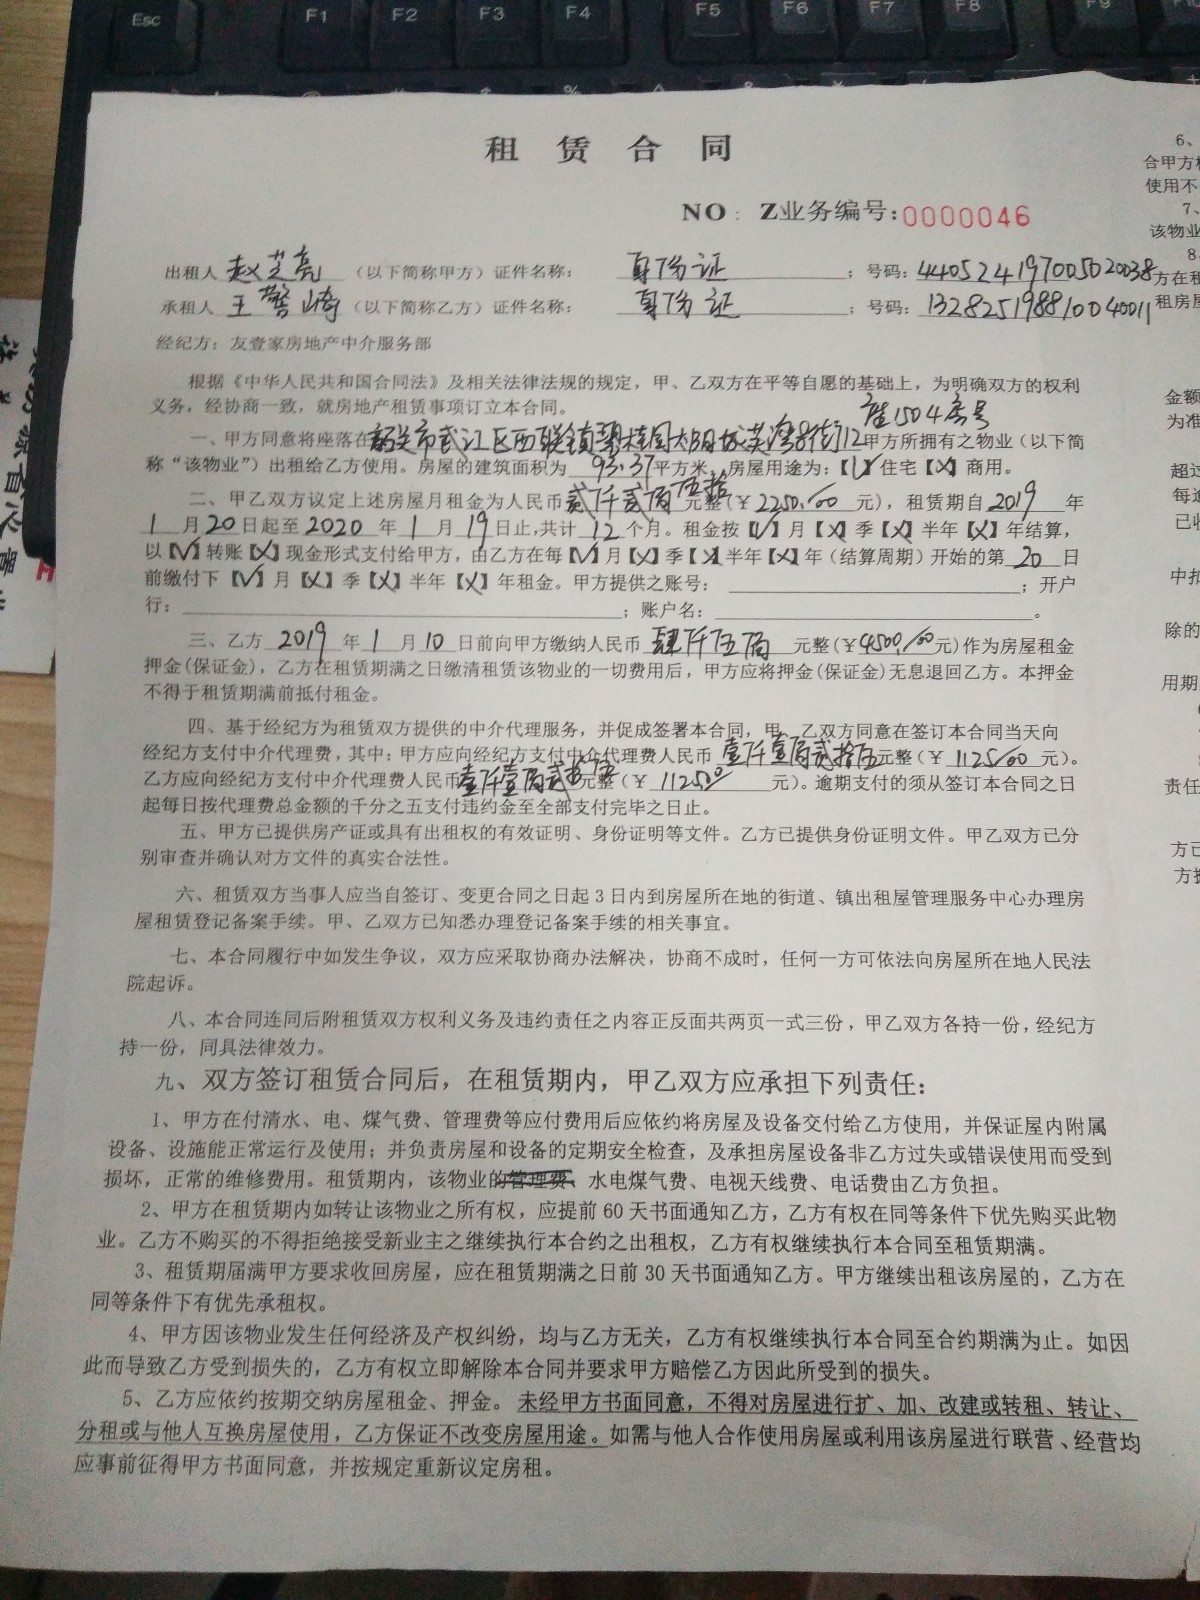 Esc F1 F2 F3 F4 F5 F6 F7 F8 F9
租赁合同
NO: Z业务编号:0000046
出租人 赵芝亮 (以下简称甲方)证件名称: 身份证 ;号码:440524197005020038
承租人 王 (以下简称乙方)证件名称: 身份证 ;号码:132825198810040011
经纪方:友壹家房地产中介服务部
根据《中华人民共和国合同法》及相关法律法规的规定,甲、乙双方在平等自愿的基础上,为明确双方的权利
义务,经协商一致,就房地产租赁事项订立本合同。
座1504房号
一、甲方同意将座落在韶关市武江区西联镇碧桂园太阳城 街12甲方所拥有之物业(以下简
称“该物业”)出租给乙方使用。房屋的建筑面积为 93.37 平方米,房屋用途为:【√】住宅【X】商用。
二、甲乙双方议定上述房屋月租金为人民币贰仟贰佰伍拾元整(¥2250.00 元),租赁期自 2019 年
1 月 20 日起至 2020 年 1 月 19 日止,共计 12 个月。租金按【√】月【X】季【X】半年【X】年结算,
以【√】转账【X】现金形式支付给甲方,由乙方在每【√】月【X】季【X】半年【X】年(结算周期)开始的第 20 日
前缴付下【√】月【X】季【X】半年【X】年租金。甲方提供之账号: ;开户
行: ;账户名: 。
三、乙方 2019 年 1 月 10 日前向甲方缴纳人民币 肆仟伍佰 元整(¥4500.00元)作为房屋租金
押金(保证金),乙方在租赁期满之日缴清租赁该物业的一切费用后,甲方应将押金(保证金)无息退回乙方。本押金
不得于租赁期满前抵付租金。
四、基于经纪方为租赁双方提供的中介代理服务,并促成签署本合同,甲、乙双方同意在签订本合同当天向
经纪方支付中介代理费,其中:甲方应向经纪方支付中介代理费人民币 壹仟壹佰贰拾伍元整(¥ 1125.00 元)。
乙方应向经纪方支付中介代理费人民币壹仟壹佰贰拾伍元整(¥ 1125.00 元)。逾期支付的须从签订本合同之日
起每日按代理费总金额的千分之五支付违约金至全部支付完毕之日止。
五、甲方已提供房产证或具有出租权的有效证明、身份证明等文件。乙方已提供身份证明文件。甲乙双方已分
别审查并确认对方文件的真实合法性。
六、租赁双方当事人应当自签订、变更合同之日起 3 日内到房屋所在地的街道、镇出租屋管理服务中心办理房
屋租赁登记备案手续。甲、乙双方已知悉办理登记备案手续的相关事宜。
七、本合同履行中如发生争议,双方应采取协商办法解决,协商不成时,任何一方可依法向房屋所在地人民法
院起诉。
八、本合同连同后附租赁双方权利义务及违约责任之内容正反面共两页一式三份,甲乙双方各持一份,经纪方
持一份,同具法律效力。
九、双方签订租赁合同后,在租赁期内,甲乙双方应承担下列责任:
1、甲方在付清水、电、煤气费、管理费等应付费用后应依约将房屋及设备交付给乙方使用,并保证屋内附属
设备、设施能正常运行及使用;并负责房屋和设备的定期安全检查,及承担房屋设备非乙方过失或错误使用而受到
损坏,正常的维修费用。租赁期内,该物业的管理费、水电煤气费、电视天线费、电话费由乙方负担。
2、甲方在租赁期内如转让该物业之所有权,应提前 60 天书面通知乙方,乙方有权在同等条件下优先购买此物
业。乙方不购买的不得拒绝接受新业主之继续执行本合约之出租权,乙方有权继续执行本合同至租赁期满。
3、租赁期届满甲方要求收回房屋,应在租赁期满之日前 30 天书面通知乙方。甲方继续出租该房屋的,乙方在
同等条件下有优先承租权。
4、甲方因该物业发生任何经济及产权纠纷,均与乙方无关,乙方有权继续执行本合同至合约期满为止。如因
此而导致乙方受到损失的,乙方有权立即解除本合同并要求甲方赔偿乙方因此所受到的损失。
5、乙方应依约按期交纳房屋租金、押金。未经甲方书面同意,不得对房屋进行扩、加、改建或转租、转让、
分租或与他人互换房屋使用,乙方保证不改变房屋用途。如需与他人合作使用房屋或利用该房屋进行联营、经营均
应事前征得甲方书面同意,并按规定重新议定房租。
6、
合甲方
使用不
7、
该物业
8、
方在租
租房屋
金额
为准
超过
每逾
已
中扣
除的
用期
责任
方已
方